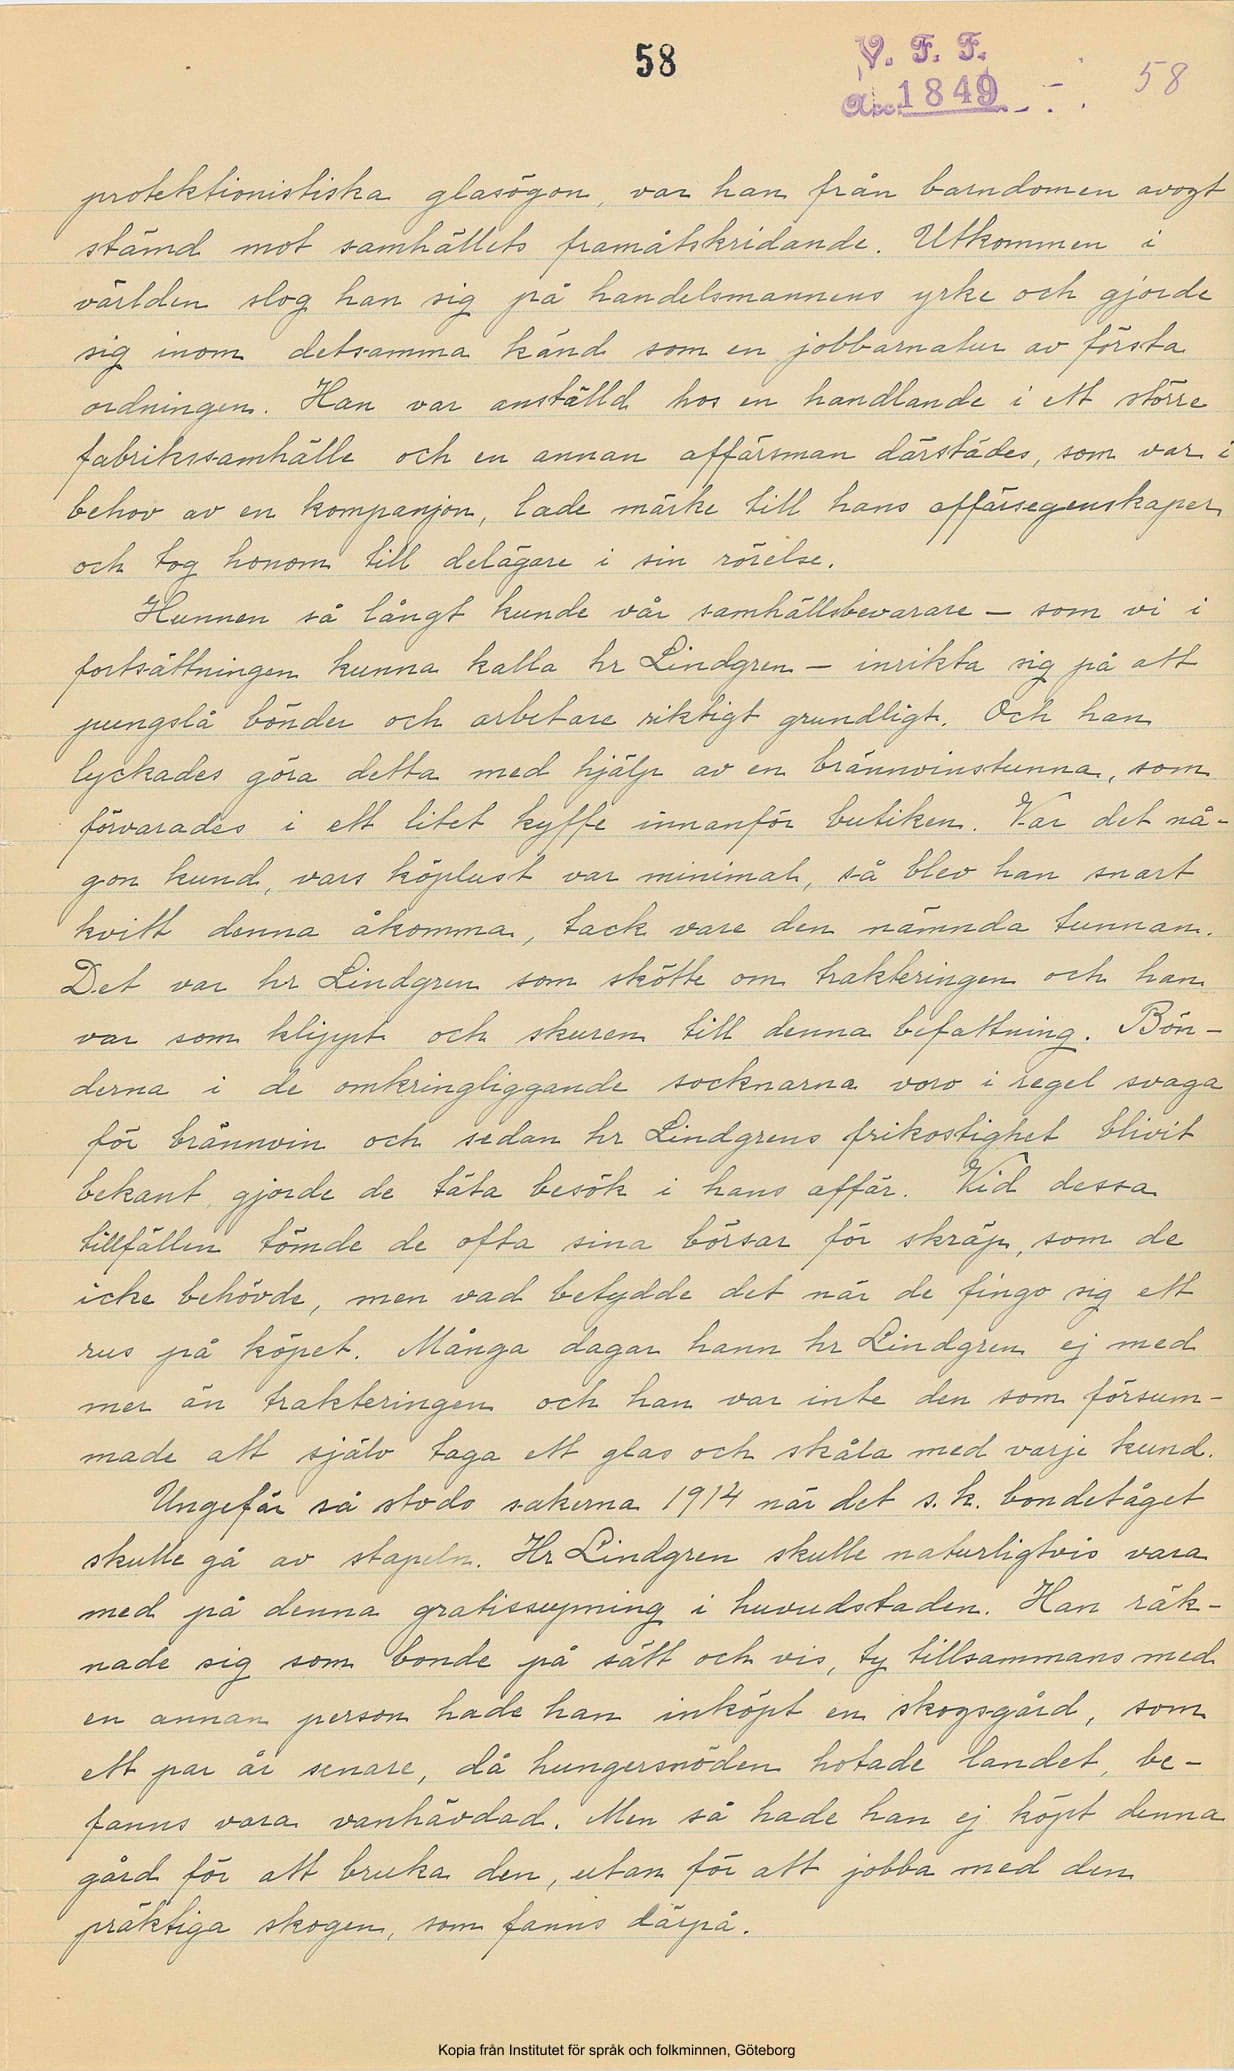 58
V. F. F.
Acc. 1849
58
protektionistiska glasögon, var han från barndomen avogt
stämd mot samhällets framåtskridande. Utkommen i
världen slog han sig på handelsmannens yrke och gjorde
sig inom detsamma känd som en jobbarnatur av första
ordningen. Han var anställd hos en handlande i ett större
fabrikssamhälle och en annan affärsman därstädes, som var i
behov av en kompanjon, lade märke till hans affärsegenskaper
och tog honom till delägare i sin rörelse.
Hunnen så långt kunde vår samhällsbevarare – som vi i
fortsättningen kunna kalla hr Lindgren – inrikta sig på att
pungslå bönder och arbetare riktigt grundligt. Och han
lyckades göra detta med hjälp av en brännvinstunna, som
förvarades i ett litet kyffe innanför butiken. Var det nå-
gon kund, vars köplust var minimal, så blev han snart
kvitt denna åkomma, tack vare den nämnda tunnan.
Det var hr Lindgren som skötte om trakteringen och han
var som klippt och skuren till denna befattning. Bön-
derna i de omkringliggande socknarna voro i regel svaga
för brännvin och sedan hr Lindgrens frikostighet blivit
bekant, gjorde de täta besök i hans affär. Vid dessa
tillfällen tömde de ofta sina börsar för skräp, som de
icke behövde, men vad betydde det när de fingo sig ett
rus på köpet. Många dagar hann hr Lindgren ej med
mer än trakteringen och han var inte den som försum-
made att själv taga ett glas och skåla med varje kund.
Ungefär så stodo sakerna 1914 när det s.k. bondetåget
skulle gå av stapeln. Hr Lindgren skulle naturligtvis vara
med på denna gratissupning i huvudstaden. Han räk-
nade sig som bonde på sätt och vis, ty tillsammans med
en annan person hade han inköpt en skogsgård, som
ett par år senare, då hungersnöden hotade landet, be-
fanns vara vanhävdad. Men så hade han ej köpt denna
gård för att bruka den, utan för att jobba med den
präktiga skogen, som fanns därpå.
Kopia från Institutet för språk och folkminnen, Göteborg